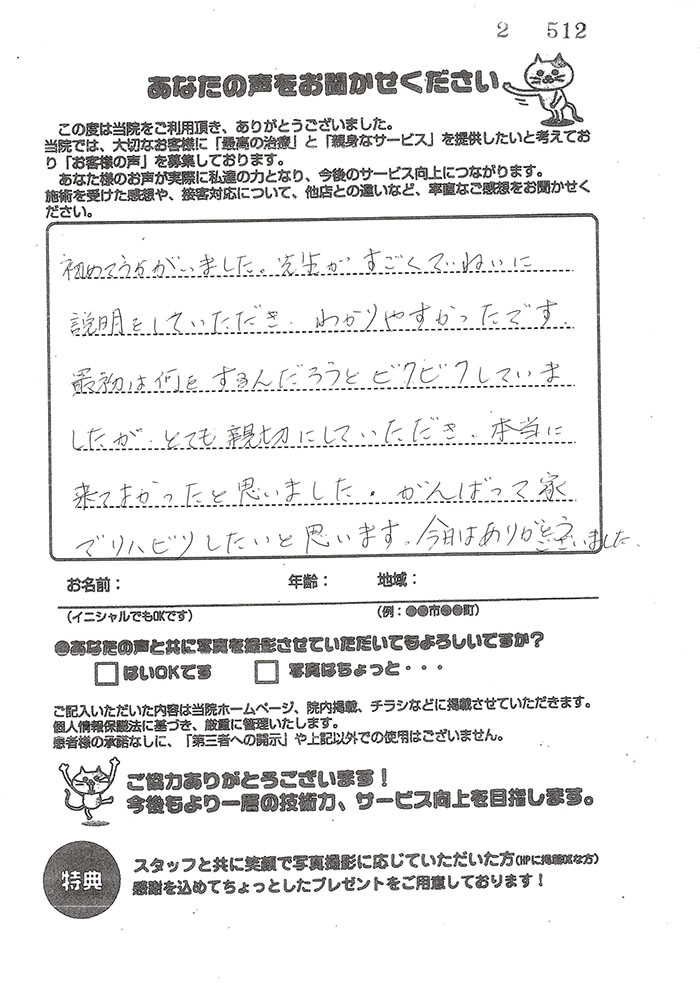 2 512
あなたの声をお聞かせください
この度は当院をご利用頂き、ありがとうございました。
当院では、大切なお客様に「最高の治療」と「親身なサービス」を提供したいと考えてお
り「お客様の声」を募集しております。
あなた様のお声が実際に私達の力となり、今後のサービス向上につながります。
施術を受けた感想や、接客対応について、他店との違いなど、率直なご感想をお聞かせく
ださい。
初めてうかがいました。先生がすごくていねいに
説明をしていただき、わかりやすかったです。
最初は何をするんだろうとビクビクしていま
したが、とても親切にしていただき、本当に
来てよかったと思いました。がんばって家
でリハビリしたいと思います。今日はありがとう
ございました。
お名前： 年齢： 地域：
（イニシャルでもOKです） （例：●●市●●町）
●あなたの声と共に写真を撮影させていただいてもよろしいですか？
□はいOKです □写真はちょっと・・・
ご記入いただいた内容は当院ホームページ、院内掲載、チラシなどに掲載させていただきます。
個人情報保護法に基づき、厳重に管理いたします。
患者様の承諾なしに、「第三者への開示」や上記以外での使用はございません。
ご協力ありがとうございます！
今後もより一層の技術力、サービス向上を目指します。
特典
スタッフと共に笑顔で写真撮影に応じていただいた方（HPに掲載OKな方）
感謝を込めてちょっとしたプレゼントをご用意しております！